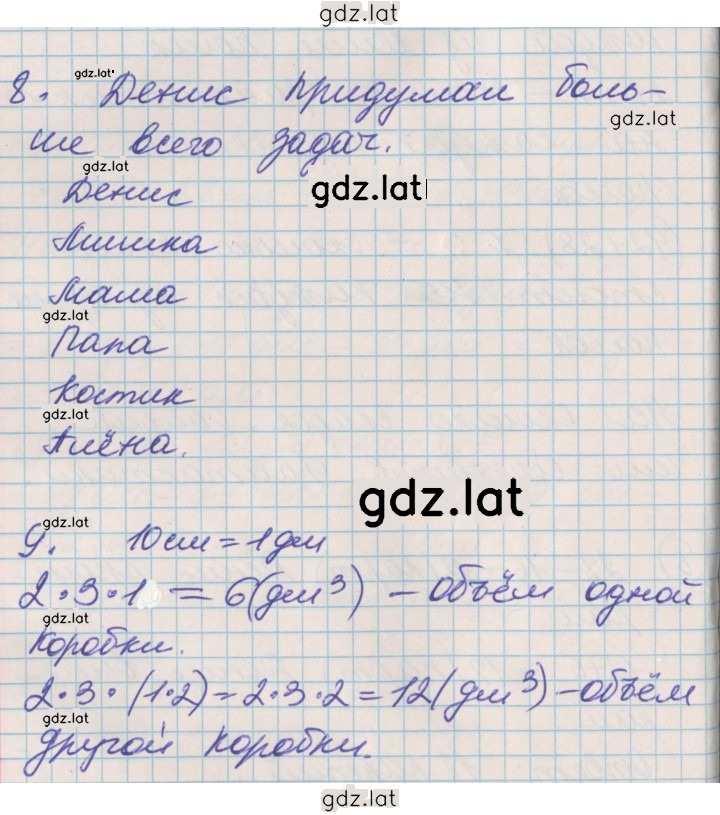 gdz.lat
gdz.lat
8. Денис придумал боль-
gdz.lat
ше всего задач.
gdz.lat
gdz.lat
Денис
Мишка
Мама
gdz.lat
Папа
Костик
gdz.lat
Алёна.
gdz.lat
gdz.lat
9. 10см = 1дм
2·3·1 = 6(дм³) – объём одной
gdz.lat
коробки.
2·3·(1·2) = 2·3·2 = 12(дм³) – объём
gdz.lat
другой коробки.
gdz.lat